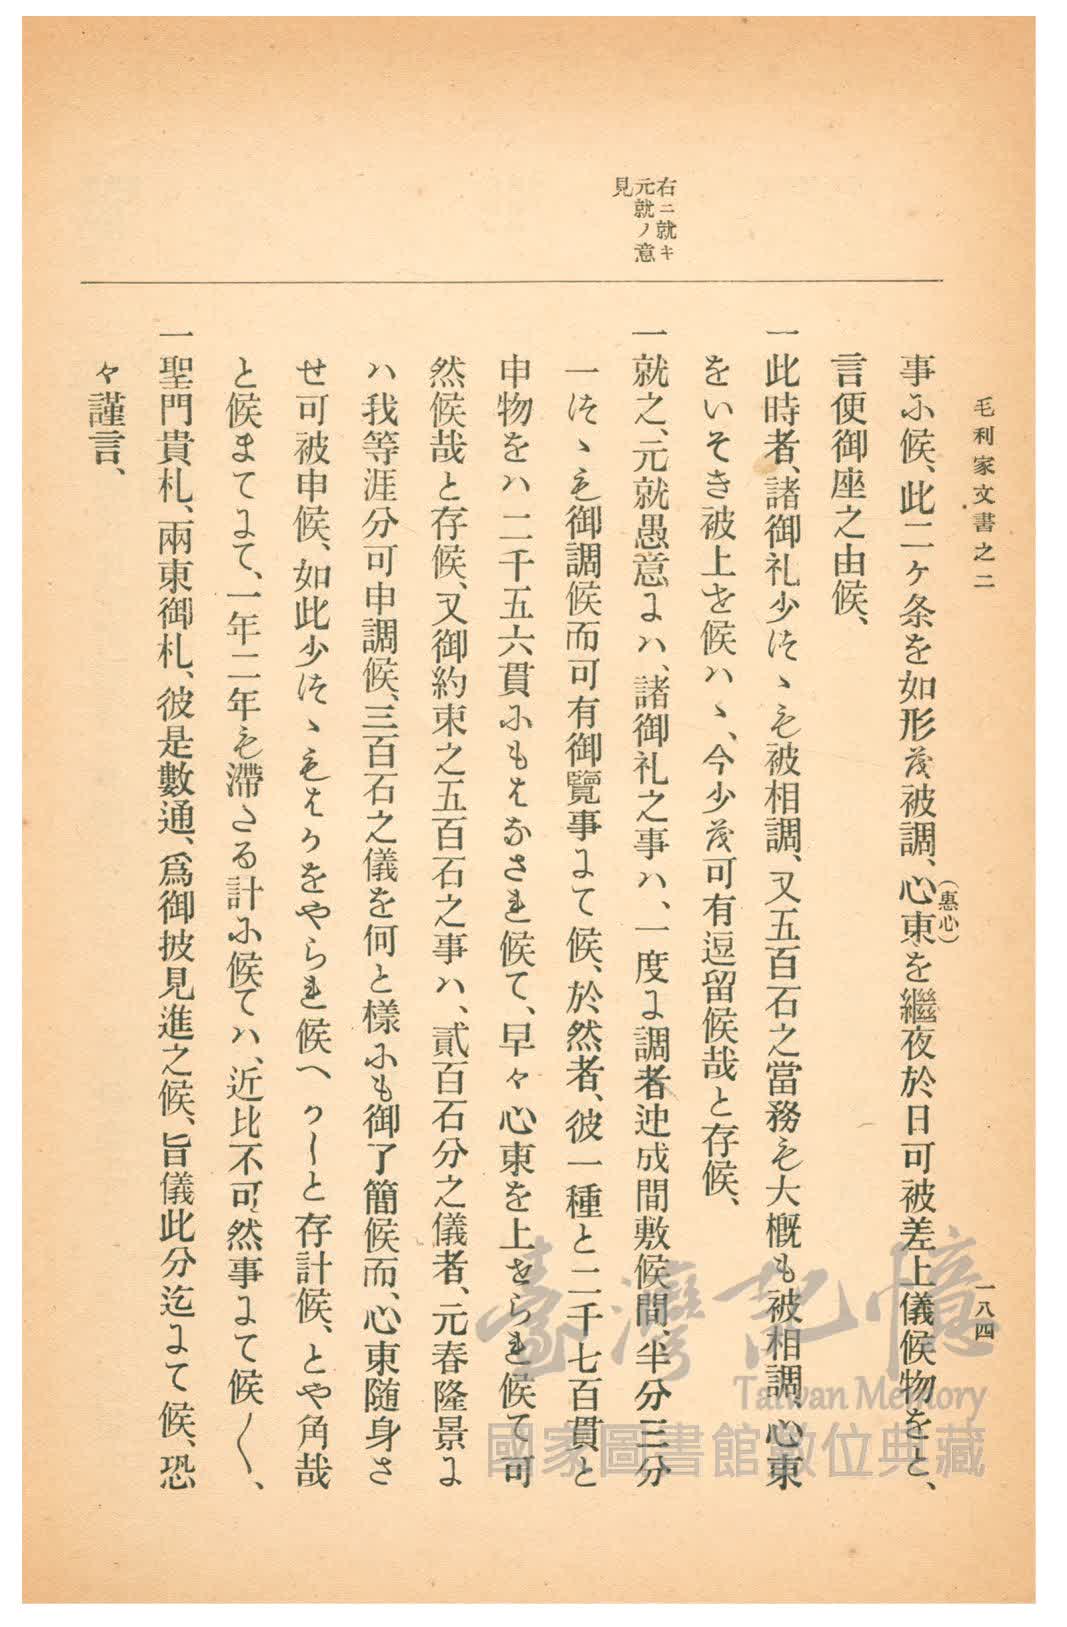 毛利家文書之二
一八四
右ニ就キ
元就ノ意
見
事ニ候、此二ケ条を如形茂被調、心東を繼夜於日可被差上儀候物をと、
(惠心)
言便御座之由候、
一此時者、諸御礼少けゝも被相調、又五百石之當務も大概も被相調、心東
をいそき被上を候ハヽ、今少茂可有逗留候哉と存候、
一就之、元就愚意ニハ、諸御礼之事ハ、一度ニ調者迚成間敷候間、半分三分
一けゝも御調候而可有御覽事ニて候、於然者、彼一種と二千七百貫と
申物をハ二千五六貫ニもはなされ候て、早々心東を上せられ候て可
然候哉と存候、又御約束之五百石之事ハ、貳百石分之儀者、元春隆景ニ
ハ我等涯分可申調候、三百石之儀を何と様ニも御了簡候而、心東随身さ
せ可被申候、如此少けゝもはかをやられ候へかしと存計候、とや角哉
と候まてニて、一年二年も滯さる計ニ候てハ、近比不可然事ニて候〳〵、
一聖門貴札、兩東御札、彼是數通、爲御披見進之候、旨儀此分迄ニて候、恐
々謹言、
臺灣記憶
Taiwan Memory
國家圖書館數位典藏